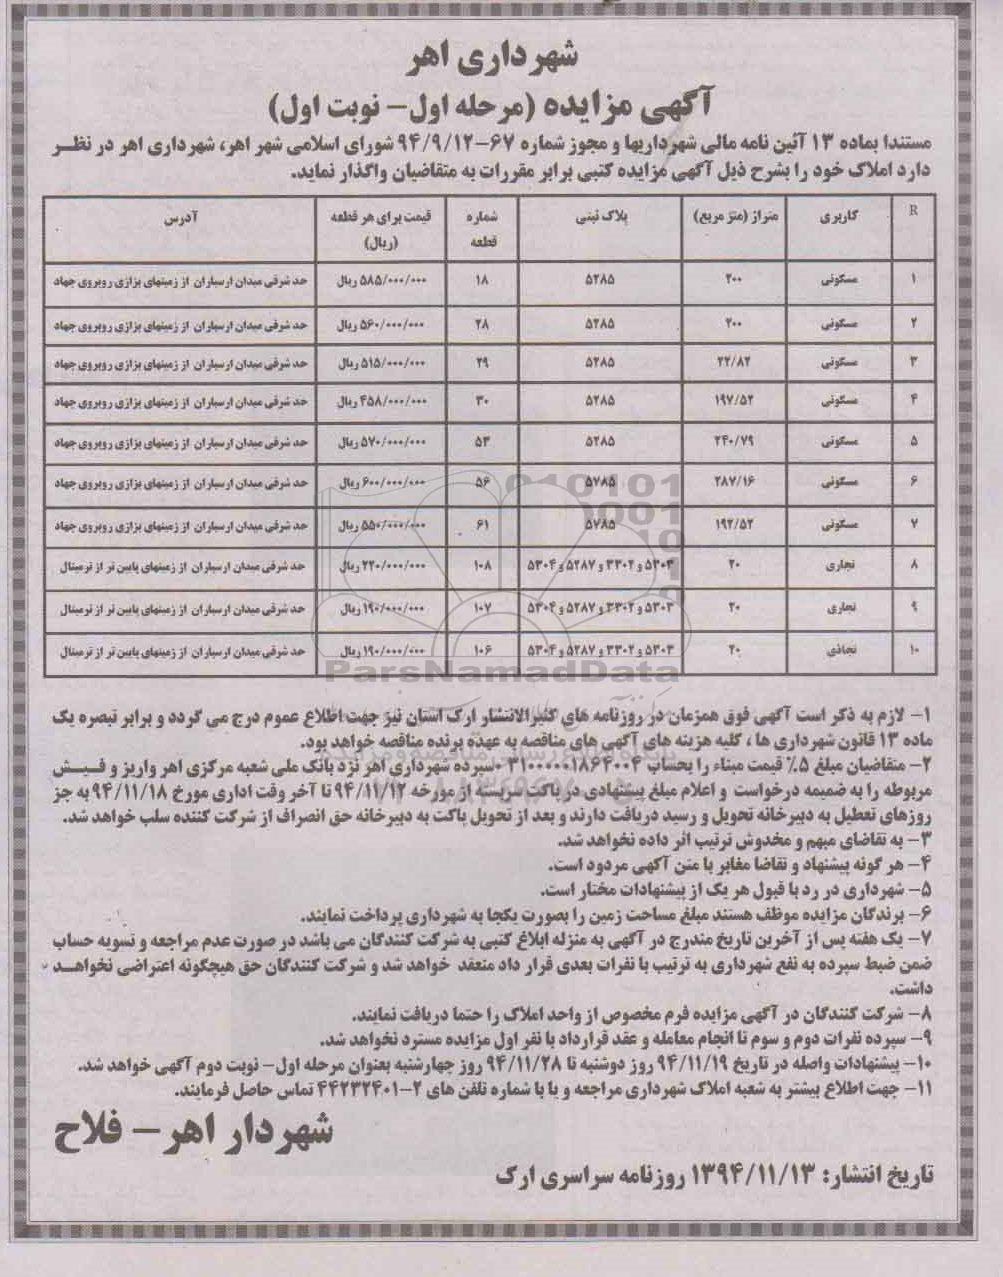 شهرداری اهر
آگهی مزایده (مرحله اول- نوبت اول)
مستندا بماده ۱۳ آئین نامه مالی شهرداریها و مجوز شماره ۶۷-۹۴/۹/۱۲ شورای اسلامی شهر اهر، شهرداری اهر در نظر
دارد املاک خود را بشرح ذیل آگهی مزایده کتبی برابر مقررات به متقاضیان واگذار نماید.
R کاربری متراژ (متر مربع) پلاک ثبتی شماره قطعه قیمت برای هر قطعه (ریال) آدرس
۱ مسکونی ۲۰۰ ۵۲۸۵ ۱۸ ۵۸۵/۰۰۰/۰۰۰ ریال حد شرقی میدان ارسباران از زمینهای بزازی روبروی جهاد
۲ مسکونی ۲۰۰ ۵۲۸۵ ۲۸ ۵۶۰/۰۰۰/۰۰۰ ریال حد شرقی میدان ارسباران از زمینهای بزازی روبروی جهاد
۳ مسکونی ۲۲/۸۲ ۵۲۸۵ ۲۹ ۵۱۵/۰۰۰/۰۰۰ ریال حد شرقی میدان ارسباران از زمینهای بزازی روبروی جهاد
۴ مسکونی ۱۹۷/۵۲ ۵۲۸۵ ۳۰ ۴۵۸/۰۰۰/۰۰۰ ریال حد شرقی میدان ارسباران از زمینهای بزازی روبروی جهاد
۵ مسکونی ۲۴۰/۷۹ ۵۲۸۵ ۵۳ ۵۷۰/۰۰۰/۰۰۰ ریال حد شرقی میدان ارسباران از زمینهای بزازی روبروی جهاد
۶ مسکونی ۲۸۷/۱۶ ۵۷۸۵ ۵۶ ۶۰۰/۰۰۰/۰۰۰ ریال حد شرقی میدان ارسباران از زمینهای بزازی روبروی جهاد
۷ مسکونی ۱۹۲/۵۲ ۵۷۸۵ ۶۱ ۵۵۰/۰۰۰/۰۰۰ ریال حد شرقی میدان ارسباران از زمینهای بزازی روبروی جهاد
۸ تجاری ۲۰ ۵۳۰۳ و ۳۳۰۲ و ۵۲۸۷ و ۵۳۰۴ ۱۰۸ ۲۲۰/۰۰۰/۰۰۰ ریال حد شرقی میدان ارسباران از زمینهای پایین تر از ترمینال
۹ تجاری ۲۰ ۵۳۰۳ و ۳۳۰۲ و ۵۲۸۷ و ۵۳۰۴ ۱۰۷ ۱۹۰/۰۰۰/۰۰۰ ریال حد شرقی میدان ارسباران از زمینهای پایین تر از ترمینال
۱۰ ۲۰ ۵۳۰۳ و ۳۳۰۲ و ۵۲۸۷ و ۵۳۰۴ ۱۰۶ ۱۹۰/۰۰۰/۰۰۰ ریال حد شرقی میدان ارسباران از زمینهای پایین تر از ترمینال
ParsNamadData
۱- لازم به ذکر است آگهی فوق همزمان در روزنامه های کثیرالانتشار ارک استان نیز جهت اطلاع عموم درج می گردد و برابر تبصره یک
ماده ۱۳ قانون شهرداری ها ، کلیه هزینه های آگهی های مناقصه به عهده برنده مناقصه خواهد بود.
۲- متقاضیان مبلغ ۵٪ قیمت مبناء را بحساب سپرده شهرداری اهر نزد بانک ملی شعبه مرکزی اهر واریز و فیش
مربوطه را به ضمیمه درخواست و اعلام مبلغ پیشنهادی در پاکت سربسته از مورخه ۹۴/۱۱/۱۲ تا آخر وقت اداری مورخ ۹۴/۱۱/۱۸ به جز
روزهای تعطیل به دبیرخانه تحویل و رسید دریافت دارند و بعد از تحویل پاکت به دبیرخانه حق انصراف از شرکت کننده سلب خواهد شد.
۳- به تقاضای مبهم و مخدوش ترتیب اثر داده نخواهد شد.
۴- هر گونه پیشنهاد و تقاضا مغایر با متن آگهی مردود است.
۵- شهرداری در رد یا قبول هر یک از پیشنهادات مختار است.
۶- برندگان مزایده موظف هستند مبلغ مساحت زمین را بصورت یکجا به شهرداری پرداخت نمایند.
۷- یک هفته پس از آخرین تاریخ مندرج در آگهی به منزله ابلاغ کتبی به شرکت کنندگان می باشد در صورت عدم مراجعه و تسویه حساب
ضمن ضبط سپرده به نفع شهرداری به ترتیب با نفرات بعدی قرار داد منعقد خواهد شد و شرکت کنندگان حق هیچگونه اعتراضی نخواهد
داشت.
۸- شرکت کنندگان در آگهی مزایده فرم مخصوص از واحد املاک را حتما دریافت نمایند.
۹- سپرده نفرات دوم و سوم تا انجام معامله و عقد قرارداد با نفر اول مزایده مسترد نخواهد شد.
۱۰- پیشنهادات واصله در تاریخ ۹۴/۱۱/۱۹ روز دوشنبه تا ۹۴/۱۱/۲۸ روز چهارشنبه بعنوان مرحله اول- نوبت دوم آگهی خواهد شد.
۱۱- جهت اطلاع بیشتر به شعبه املاک شهرداری مراجعه و یا با شماره تلفن های ۲-۴۴۲۳۲۴۰۱ تماس حاصل فرمایند.
شهردار اهر- فلاح
تاریخ انتشار: ۱۳۹۴/۱۱/۱۳ روزنامه سراسری ارک